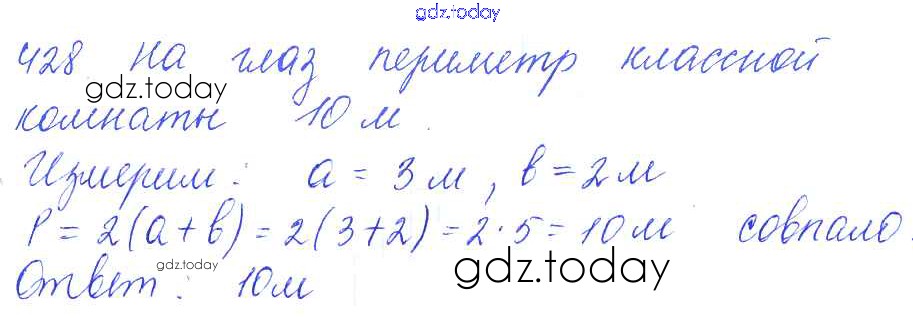 gdz.today
428 На глаз периметр классной
gdz.today
комнаты 10 м.
Измерим: a = 3 м, в = 2 м
P = 2(a + в) = 2(3+2) = 2·5 = 10 м совпало.
gdz.today gdz.today
Ответ: 10 м